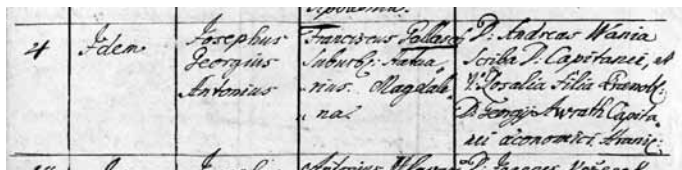 4 Idem Josephus Georgius Antonius
Franciscus Gallasch
Suburb: Statua
„rius. Magdale
„na.
D: Andreas Wania
Scriba D: Capitanei, et
V: Rosalia Filia Prænob:
D: Georgij Awrath Capita
nei œconomici Hranic:
Antonius
D: Ignaces